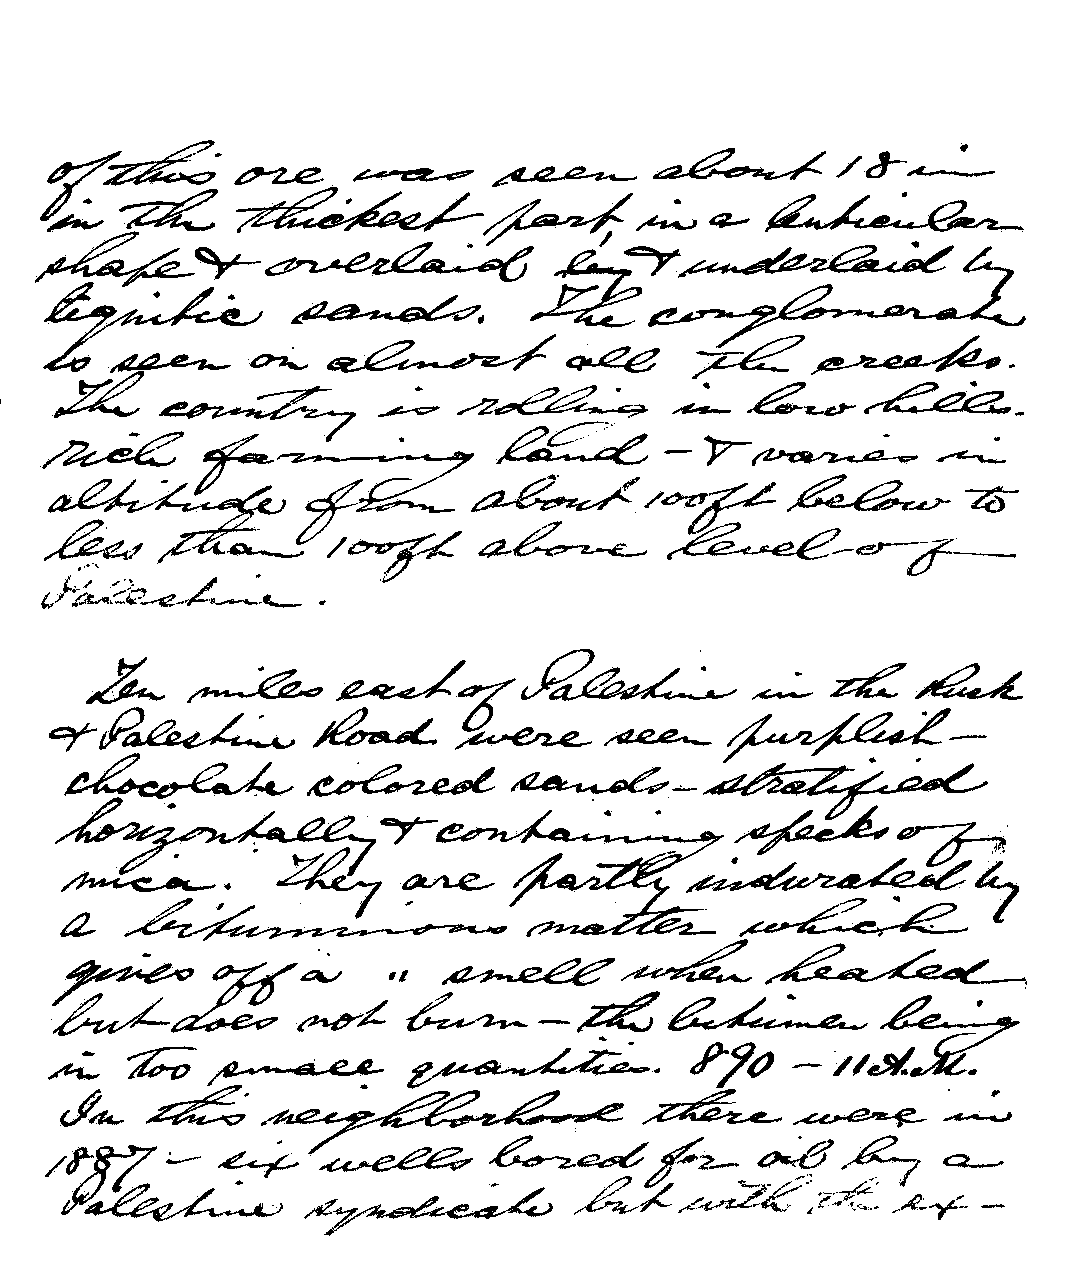 of this ore was seen about 18 in
in the thickest part, in a lenticular
shape & overlaid by & underlaid by
lignitic sands. The conglomerate
is seen on almost all the creeks.
The country is rolling in low hills.
rich farming land - & varies in
altitude from about 100ft below to
less than 100ft above level of
Palestine.
Ten miles east of Palestine in the Rusk
& Palestine Road were seen purplish -
chocolate colored sands - stratified
horizontally & containing specks of
mica. They are partly indurated by
a bituminous matter which
gives off a " smell when heated
but does not burn - the bitumen being
in too small quantities. 890 - 11 A.M.
In this neighborhood there were in
1887 - six wells bored for oil by a
Palestine syndicate but with the ex-